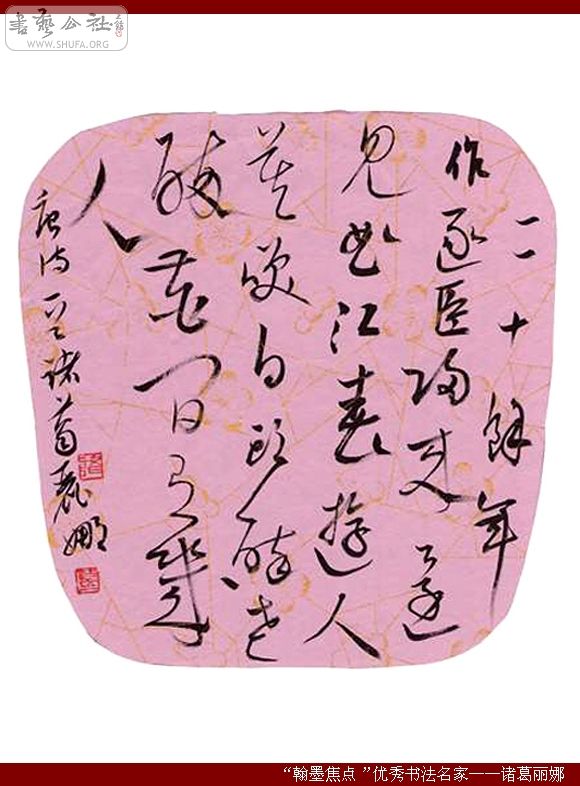 書藝公社
WWW.SHUFA.ORG
二十餘年
作逐臣歸來還
見曲江春遊人
莫笑白頭醉老
醉花間有幾
人
唐詩一首諸葛麗娜
“翰墨焦点 ”优秀书法名家——诸葛丽娜